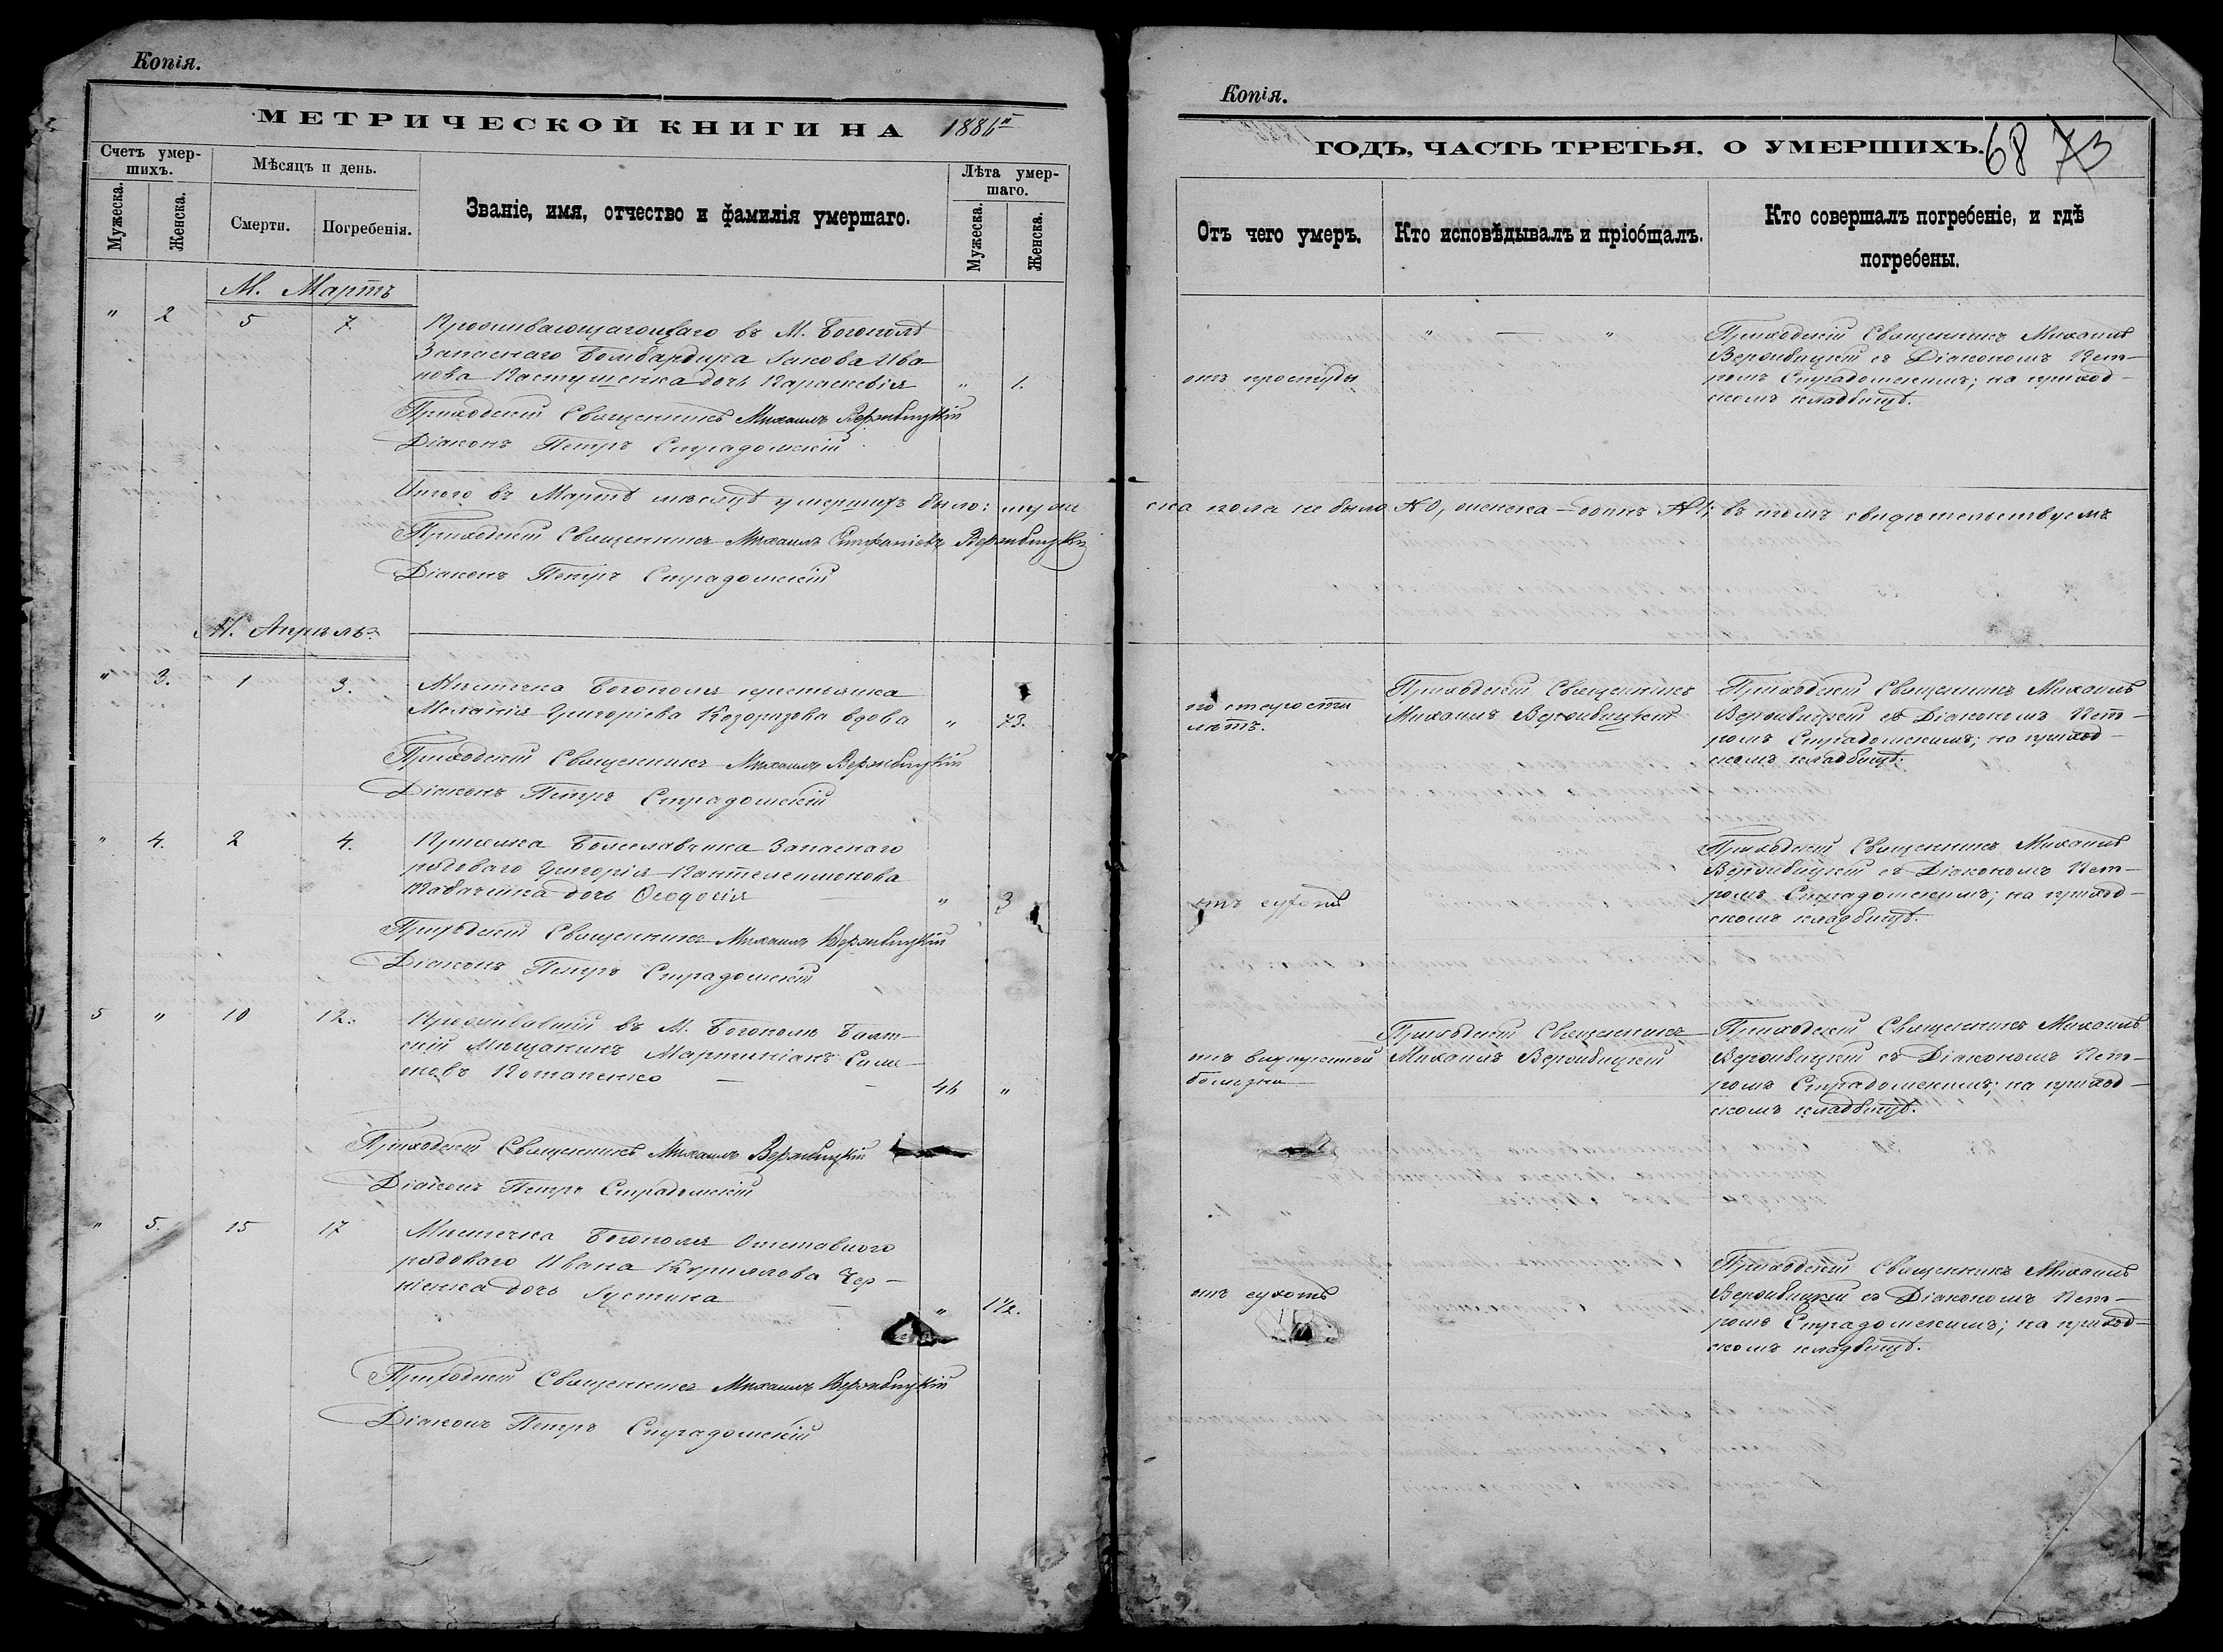 Копія.
МЕТРИЧЕСКОЙ КНИГИ НА
Счетъ умер-
шихъ.
Мѣсяцъ и день.
Званіе, имя, отчество и фамилія умершаго.
Лѣта умер-
шаго.
Мужеска.
Женска.
Смерти.
Погребенія.
Мужеска.
Женска.
М. Мартъ
" 2 5 7.
въ М. Богополѣ
Запаснаго Бомбардира Іакова Ива-
нова Пастушенка дочь Параскевія " 1.
Приходскій Священникъ Михаилъ Вержбицкій
Діаконъ Петръ Страдомскій
Итого въ Мартѣ мѣсяцѣ умершихъ было: муже
Приходскій Священникъ Михаилъ Вержбицкій
Діаконъ Петръ Страдомскій
М. Апрѣль.
" 3. 1 3. Мѣстечка Богополя крестьянка
Меланія Григоріева вдова " 73.
Приходскій Священникъ Михаилъ Вержбицкій
Діаконъ Петръ Страдомскій
" 4. 2 4. Запаснаго
рядоваго Григорія Пантелеимонова
дочь Ѳеодосія " 3
Приходскій Священникъ Михаилъ Вержбицкій
Діаконъ Петръ Страдомскій
5 " 10 12. Проживавшій въ М. Богополѣ Балт-
скій Мѣщанинъ Мартиніанъ Симе-
оновъ Потапенко "
Приходскій Священникъ Михаилъ Вержбицкій
Діаконъ Петръ Страдомскій
" 5. 15 17 Мѣстечка Богополя Отставного
рядоваго Ивана Кириллова Чер-
ніенка дочь Іустина " 1½.
Приходскій Священникъ Михаилъ Вержбицкій
Діаконъ Петръ Страдомскій
Копія.
ГОДЪ, ЧАСТЬ ТРЕТЬЯ, О УМЕРШИХЪ.
68 73
Отъ чего умеръ.
Кто исповѣдывалъ и пріобщалъ.
Кто совершалъ погребеніе, и гдѣ
погребены.
отъ простуды
" — "
Приходскій Священникъ Михаилъ
Вержбицкій съ Діакономъ Пет-
ромъ Страдомскимъ; на приход-
скомъ кладбищѣ.
ска пола не было № 0, женска — одинъ № 1; въ томъ свидѣтельствуемъ
по старости
лѣтъ.
Приходскій Священникъ
Михаилъ Вержбицкій
Приходскій Священникъ Михаилъ
Вержбицкій съ Діакономъ Пет-
ромъ Страдомскимъ; на приход-
скомъ кладбищѣ.
отъ сухотъ
Приходскій Священникъ Михаилъ
Вержбицкій съ Діакономъ Пет-
ромъ Страдомскимъ; на приход-
скомъ кладбищѣ.
болѣзни
Приходскій Священникъ
Михаилъ Вержбицкій
Приходскій Священникъ Михаилъ
Вержбицкій съ Діакономъ Пет-
ромъ Страдомскимъ; на приход-
скомъ кладбищѣ.
отъ сухотъ
Приходскій Священникъ Михаилъ
Вержбицкій съ Діакономъ Пет-
ромъ Страдомскимъ; на приход-
скомъ кладбищѣ.